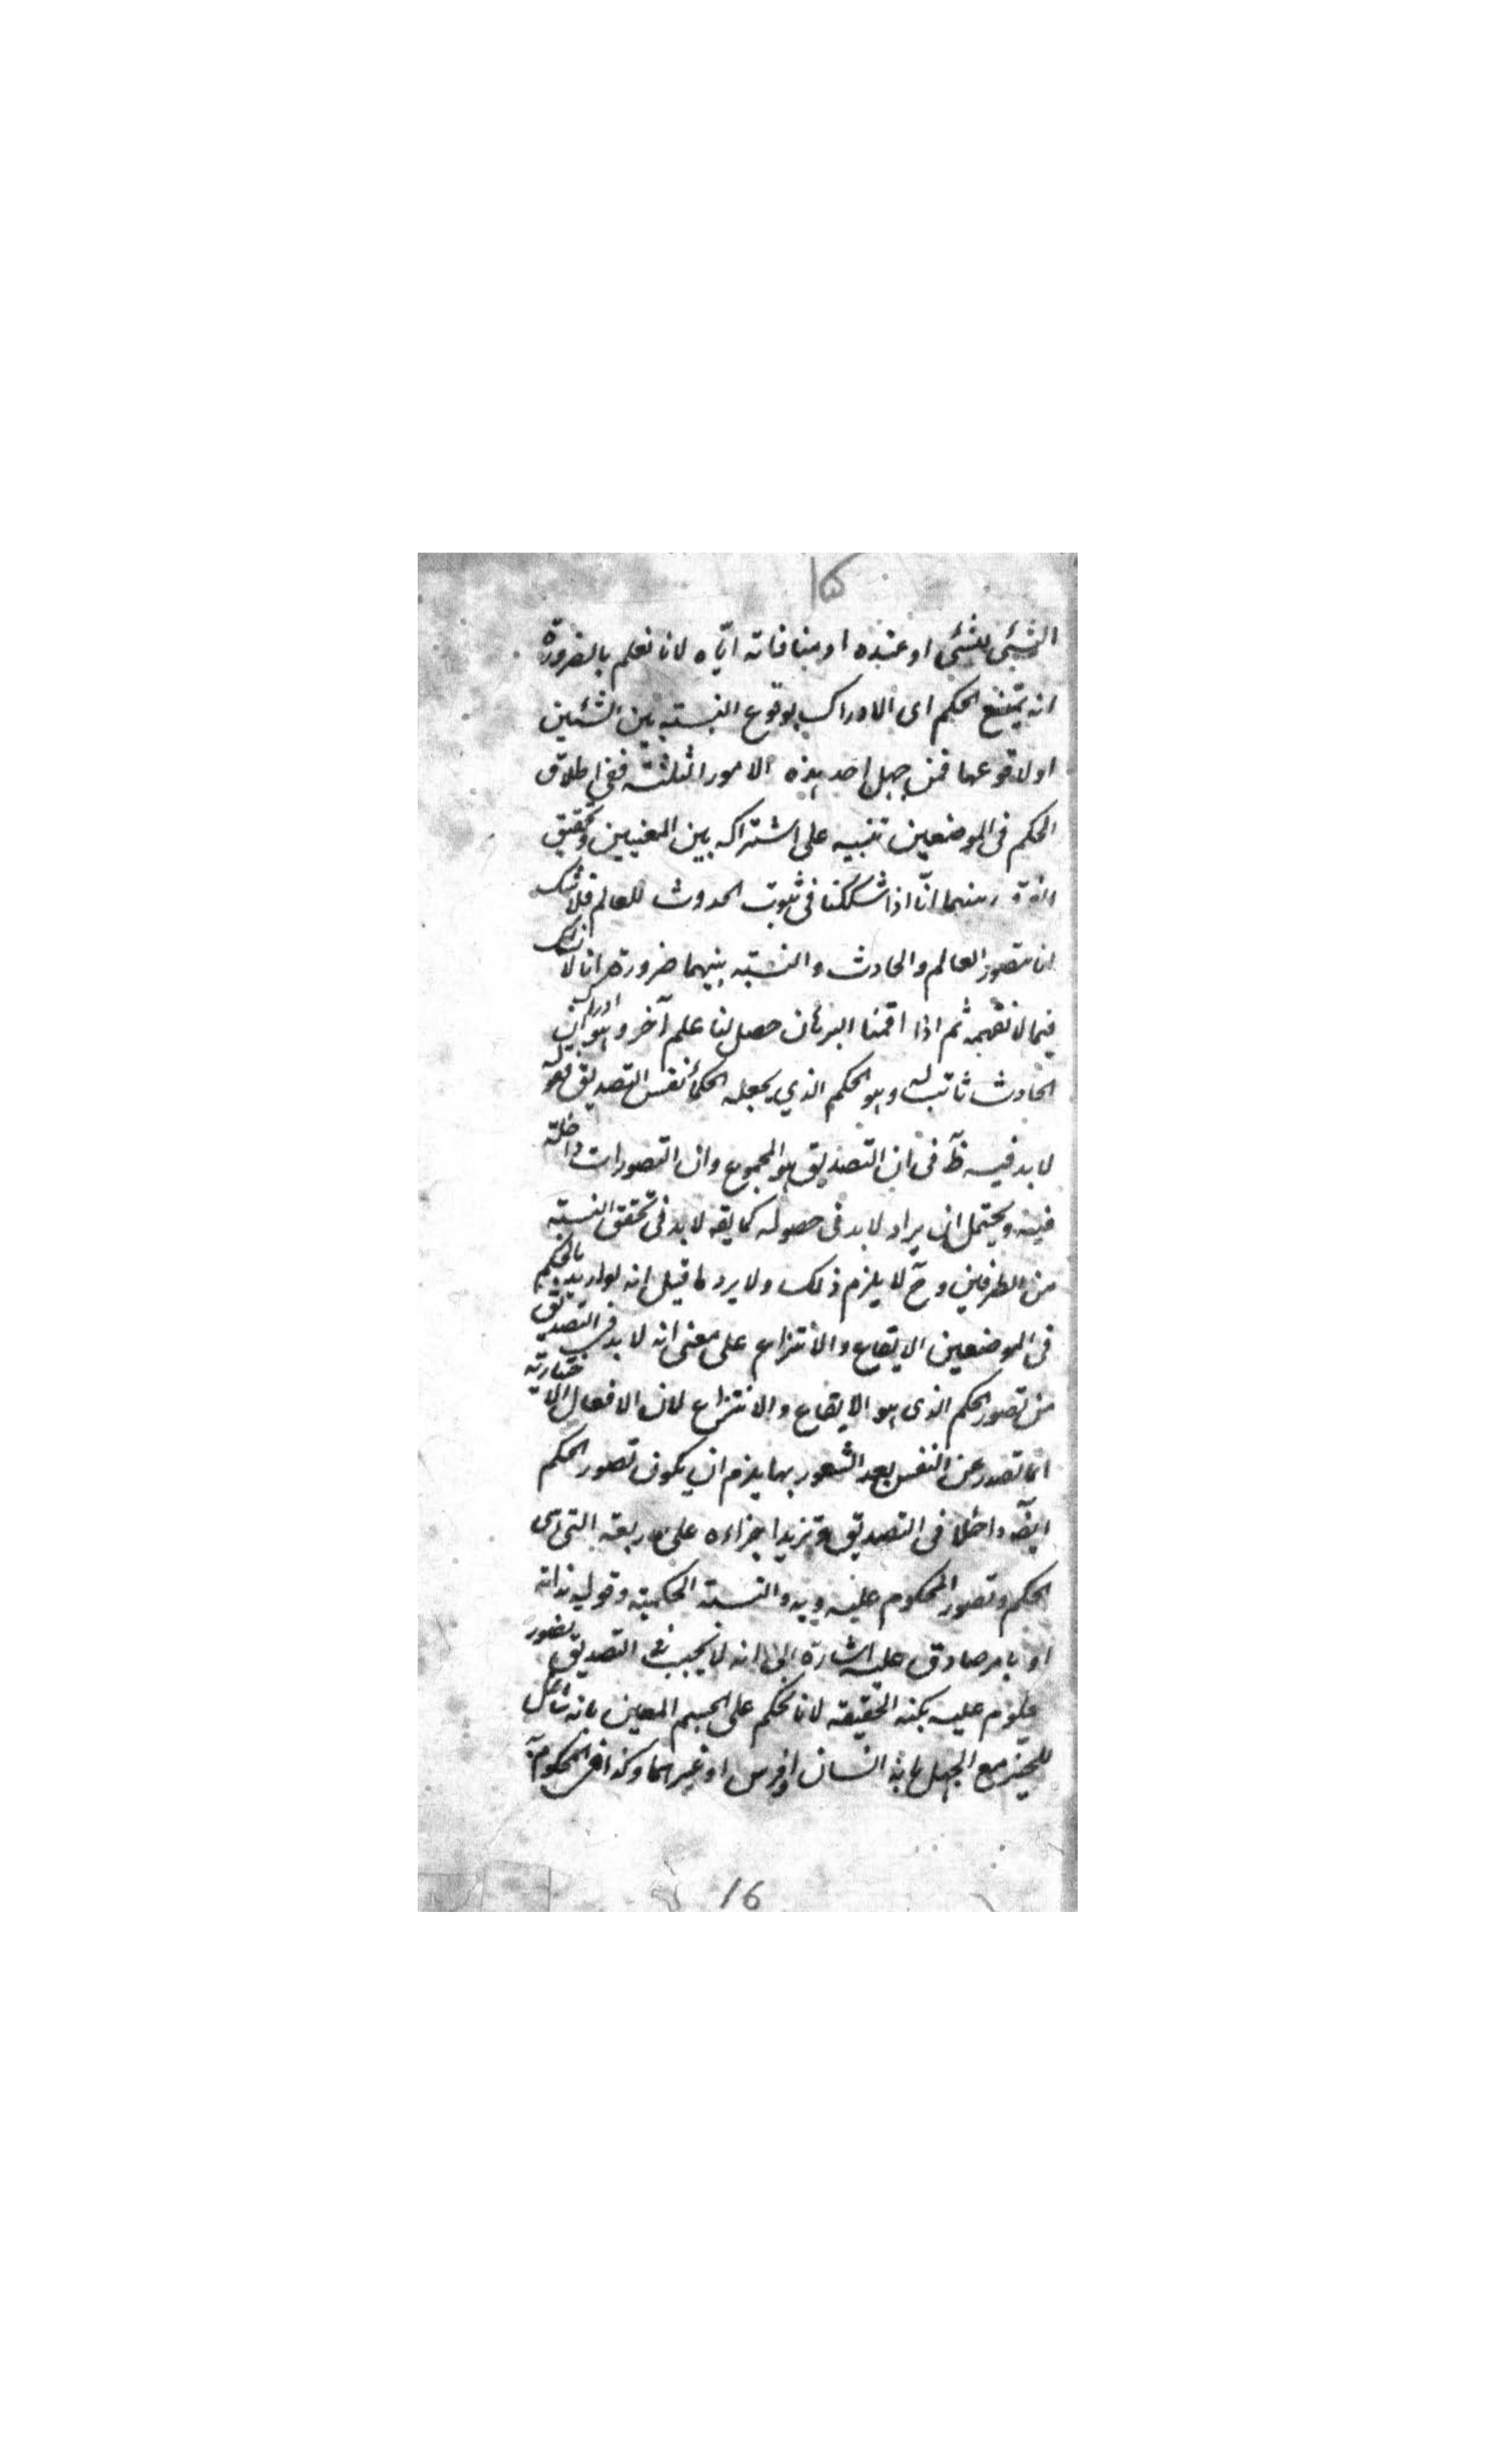 ١٥
الشئ للشئ او عنده او منافاته اياه لانا نعلم بالضرورة
انه يمتنع الحكم اى الادراك بوقوع النسبته بين الشئين
او لاقوعها فمن جهل احد هذه الامور الثلثة ففى اطلاق
الحكم فى الموضعين تنبيه على اشتراكه بين المعنيين وتحقيق
بينهما انّا اذا شككنا فى ثبوت الحدوث للعالم فلا شك
انا نتصور العالم والحادث والنسبته بينهما ضرورة انا لا نشك
فيما لا نفهمه ثم اذا اقمنا البرهان حصل لنا علم آخر وهو ادراك ان
الحادث ثابت له وهو الحكم الذي يجعله الحكماء نفس التصديق قوله
لا بد فيه ظ فى ان التصديق هو المجموع وان التصورات داخلة
فيه ويحتمل ان يراد لا بد فى حصوله كما يقه لا بد فى تحقق النسبته
من الطرفين وح لا يلزم ذلك ولا يرد ما قيل انه لو اريد بالحكم
فى الموضعين الايقاع والانتزاع على معنى انه لا بد فى التصديق
من تصور الحكم الذى هو الايقاع والانتزاع لان الافعال الاختيارية
انما تصدر عن النفس بعد الشعور بها يلزم ان يكون تصور الحكم
ايضه داخلا فى التصديق فتزيد اجزاءه على اربعة التى هى
الحكم وتصور المحكوم عليه وبه والنسبته الحكمية وقوله بذاته
او بامر صادق عليه اشارة الى انه لا يجب فى التصديق تصور
عليه بكنه الحقيقه لانا نحكم على الجسم المعين بانه شاغل
للحيز مع الجهل بانه انسان او فرس او غيرهما وكذا فى المحكوم به
16